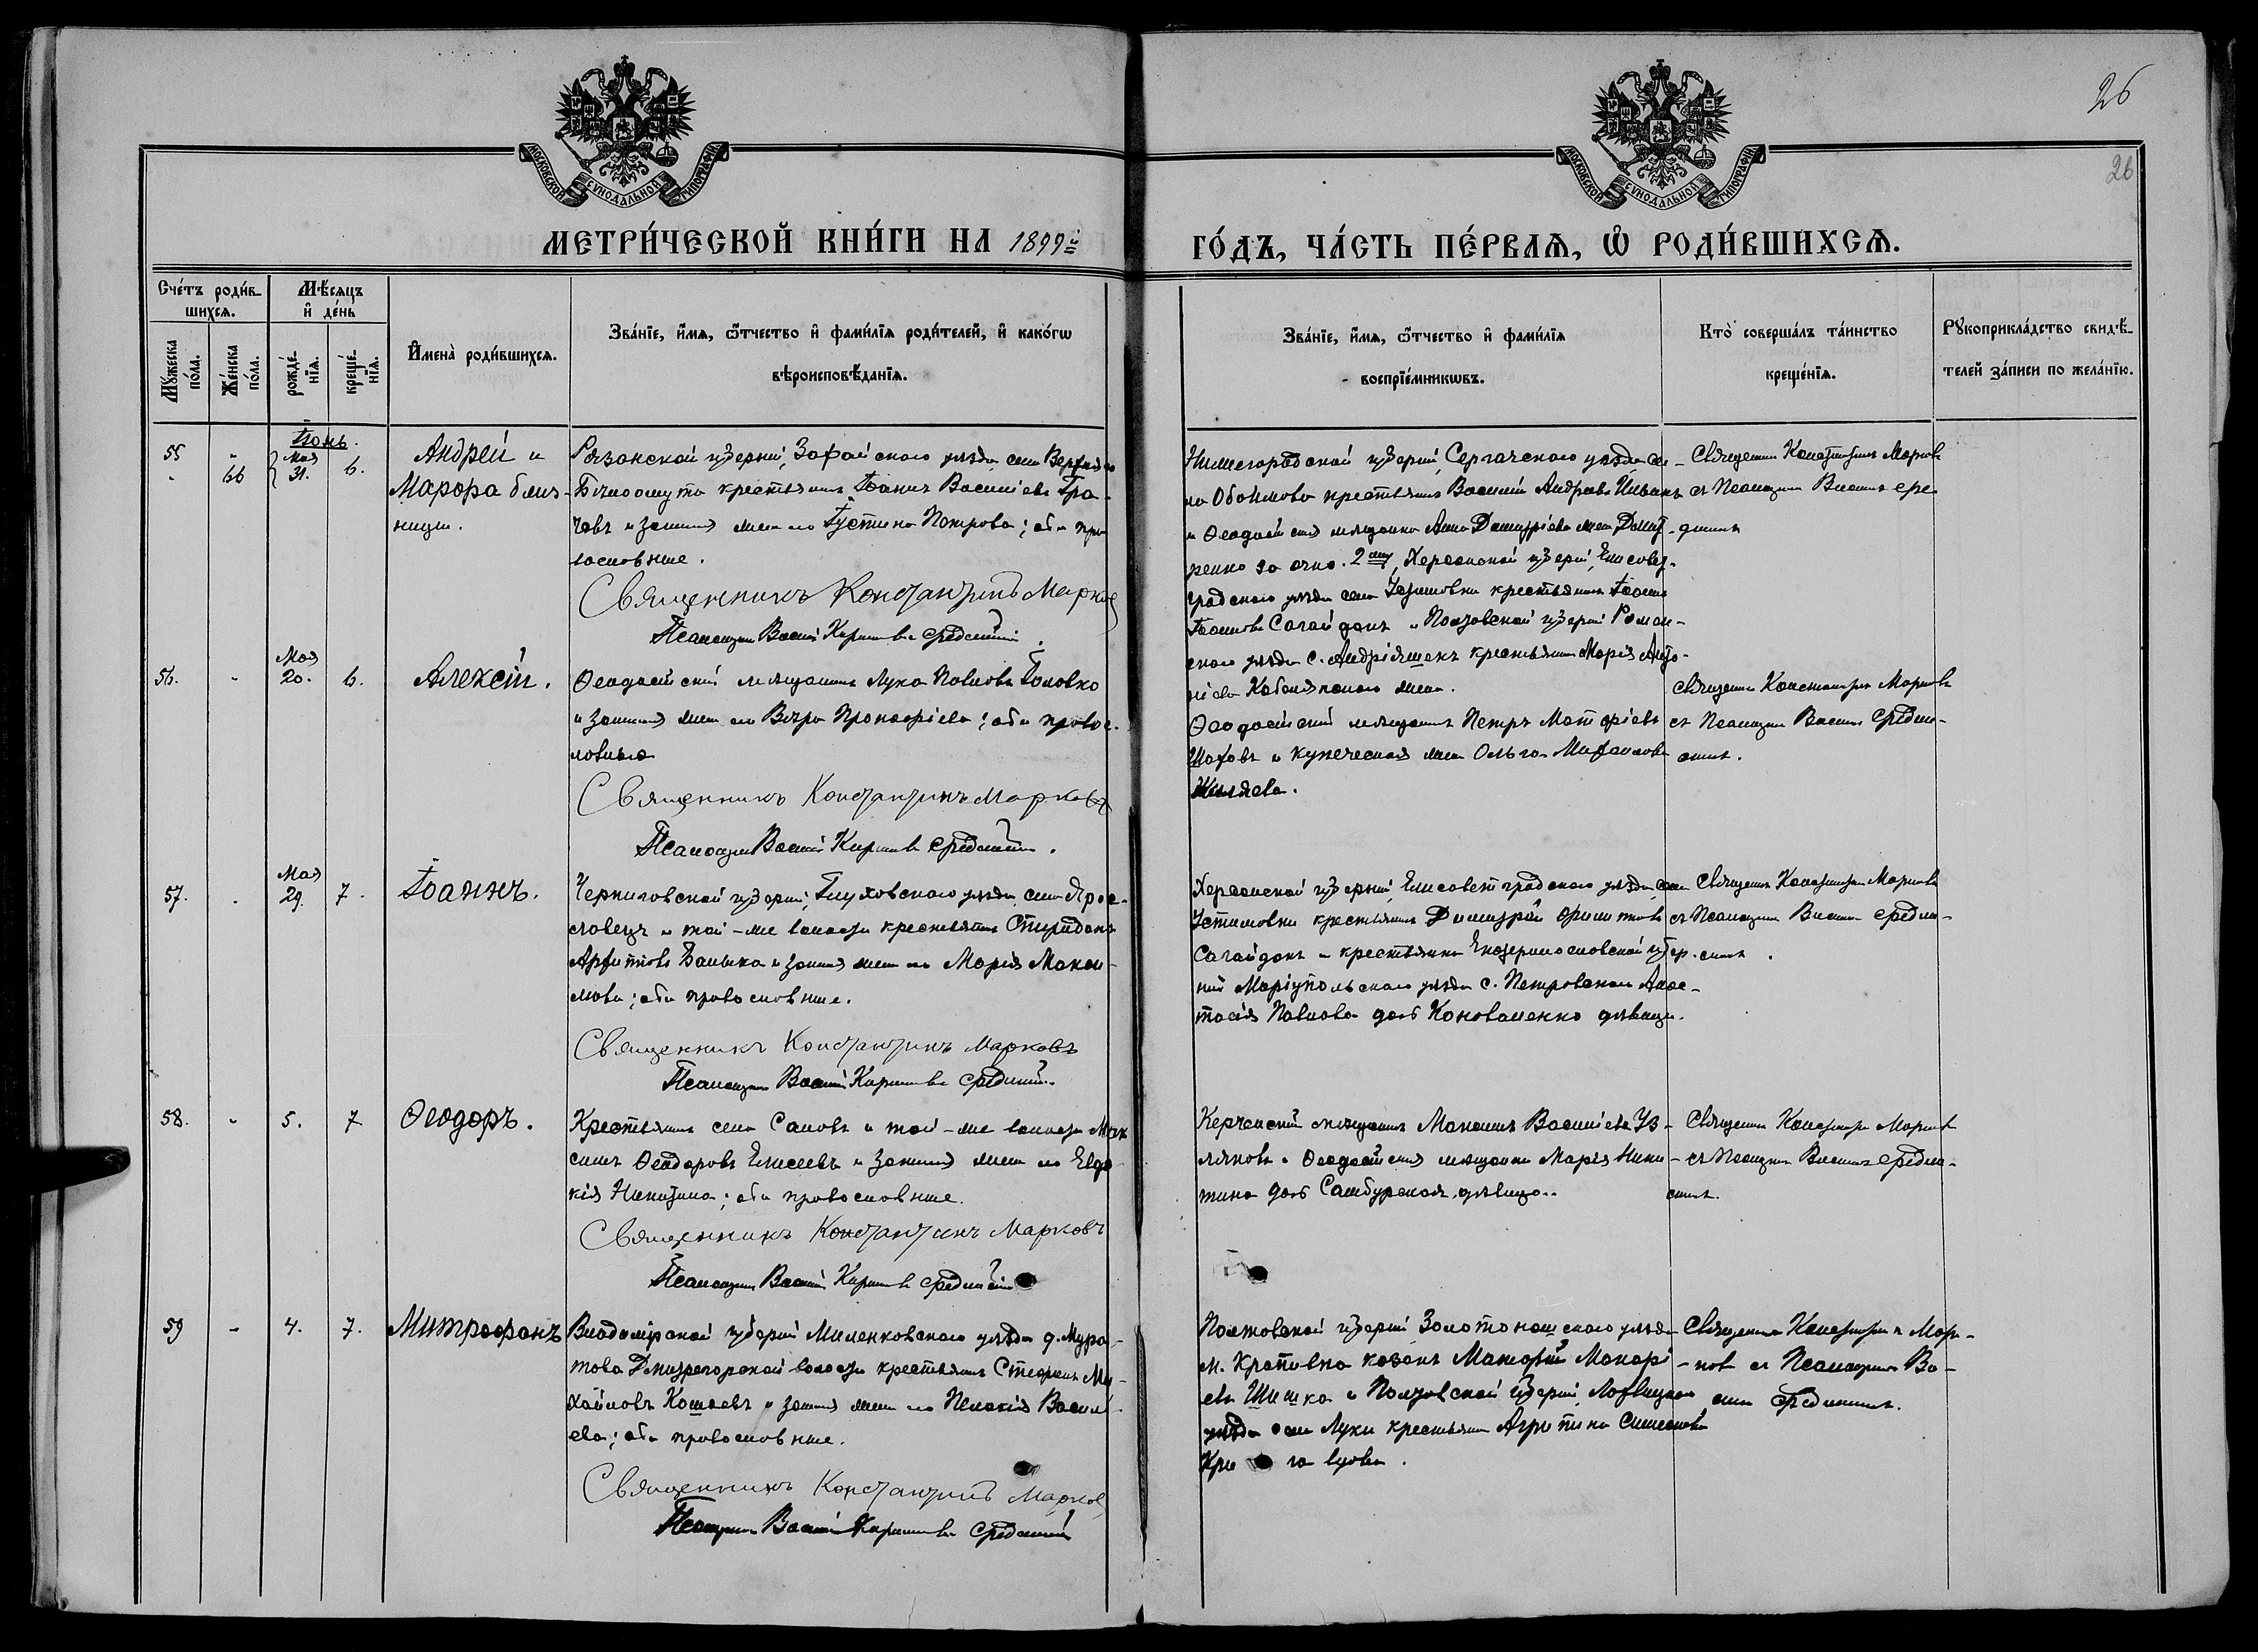 26
26
МОСКОВСКОЙ СУНОДАЛЬНОЙ ТИПОГРАФІИ
МОСКОВСКОЙ СУНОДАЛЬНОЙ ТИПОГРАФІИ
МЕТРИ́ЧЕСКОЙ КНИ́ГИ НА 1899й
ГО́ДЪ, ЧА́СТЬ ПЕ́РВАѦ, Ѡ҆ РОДИ́ВШИХСѦ.
Сче́тъ роди́в-
шихсѧ.
Мѣ́сѧцъ
и҆ де́нь
Мꙋ́жеска
по́ла.
Же́нска
по́ла.
рожде́-
нїѧ.
креще́-
нїѧ.
И҆мена̀ роди́вшихсѧ.
Зва́нїе, и҆́мѧ, ѻ҆́тчество и҆ фами́лїѧ роди́телей, и҆ како́гѡ
вѣроисповѣ́данїѧ.
Зва́нїе, и҆́мѧ, ѻ҆́тчество и҆ фами́лїѧ
воспрїе́мникѡвъ.
Кто̀ соверша́лъ та́инство
креще́нїѧ.
Рꙋкоприкла́дство свидѣ́-
телей за́писи по жела́нїю.
Іюнь.
55 " Мая 6. Андрей и
" 66 31.
Марфа близ-
ницы.
Рязанской губерніи, Зарайскаго уѣзда села Верхняго
Бѣлоомута крестьянинъ Іоаннъ Васильевъ Гра-
чевъ и законная жена его Іустина Петрова; оба пра
вославные.
Священникъ Константинъ Марковъ
Псаломщикъ Василій Кирилловъ Срединскій.
Нижегородской губерніи, Сергачскаго уѣзда се-
ла крестьянинъ Василій Андреевъ
и Ѳеодосійская мѣщанка Анна Димитріева жена
2
Херсонской губерніи, Елисовет-
градскаго уѣзда села Устиновки крестьянинъ Іоаннъ
Іоанновъ Сагайдакъ и Полтавской губерніи Ромен-
скаго уѣзда с. Андріяшекъ крестьянка Марія Анто-
ніева жена.
Священникъ Константинъ Марковъ
съ Псаломщикомъ Василіемъ Сре-
динск
56. " Мая 20. 6. Алексій.
Ѳеодосійскій мѣщанинъ Лука Павловъ Головко
и законная жена его Вѣра Прокофіева; оба правос-
лавные
Священникъ Константинъ Марковъ
Псаломщикъ Василій Кирилловъ Срединскій.
Ѳеодосійскій мѣщанинъ Петръ Матфіевъ
Шаховъ и купеческая жена Ольга Михаилова
Священникъ Константинъ Марковъ
съ Псаломщикомъ Василіемъ Средин-
скимъ.
57. . Мая 29. 7. Іоаннъ.
Черниговской губерніи, Глуховскаго уѣзда села Ярос-
лавецъ и той-же волости крестьянинъ Спиридонъ
Архиповъ и законная жена его Марія Макси-
мова; оба православные.
Священникъ Константинъ Марковъ
Псаломщикъ Василій Кирилловъ Срединскій
Херсонской губерніи Елисоветградскаго уѣзда, села
Устиновки крестьянинъ Димитрій Филиповъ
Сагайдакъ и крестьянка Екатеринославской губер-
ніи Маріупольскаго уѣзда с. Петровскаго Анас-
тасія Павлова дочь Коноваленко дѣвица.
Священникъ Константинъ Марковъ
съ Псаломщикомъ Василіемъ Средин-
скимъ.
58. " 5. 7 Ѳеодоръ.
Крестьянинъ села Саловъ и той-же волости Мак
симъ Ѳеодоровъ Елисеевъ и законная жена его Евдо-
кія Никитина; оба православные.
Священникъ Константинъ Марковъ
Псаломщикъ Василій Кирилловъ Срединскій
Керченскій мѣщанинъ Максимъ Васильевъ Уз-
ляковъ и Ѳеодосійская мѣщанка Марѳа Ники-
тина дочь Самбурская, дѣвица.
Священникъ Константинъ Марковъ
съ Псаломщикомъ Василіемъ Средин-
скимъ.
59 " 4. 7. Митрофанъ
Владимірской губерніи Меленковскаго уѣзда д. Мура-
това Дмитрегорской волости крестьянинъ Стефанъ Ми-
хайловъ Кошаевъ и законная жена его Пелагія Васил
ева; оба православные.
Священникъ Константинъ Марковъ
Псаломщикъ Василій Кирилловъ Срединскій
Полтавской губерніи Золотоношскаго уѣзда
м. Кропивна козакъ Макарі-
евъ Шишка и Полтавской губерніи, Лохвицкаго
уѣзда села Луки крестьянка Агрипина Симеонова
вдова.
Священникъ Константинъ Мар-
ковъ съ Псаломщикомъ Ва-
силіемъ Срединскимъ.